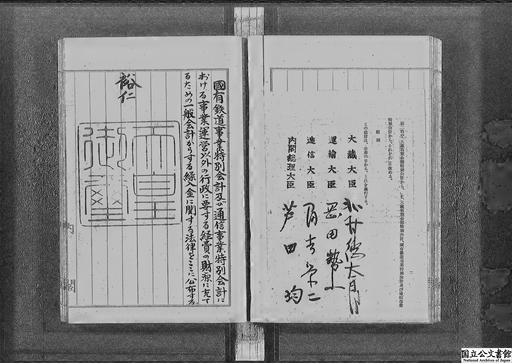 附則
この法律は、公布の日から、これを施行する。
大藏大臣 北村徳太郎
運輸大臣 岡田勢一
逓信大臣 冨吉榮二
内閣総理大臣 芦田均
國有鉄道事業特別会計及び通信事業特別会計に
おける事業運営以外の行政に要する経費の財源に充て
るための一般会計からする繰入金に関する法律をここに公布する
裕仁
天皇
御璽
内閣
国立公文書館
National Archives of Japan